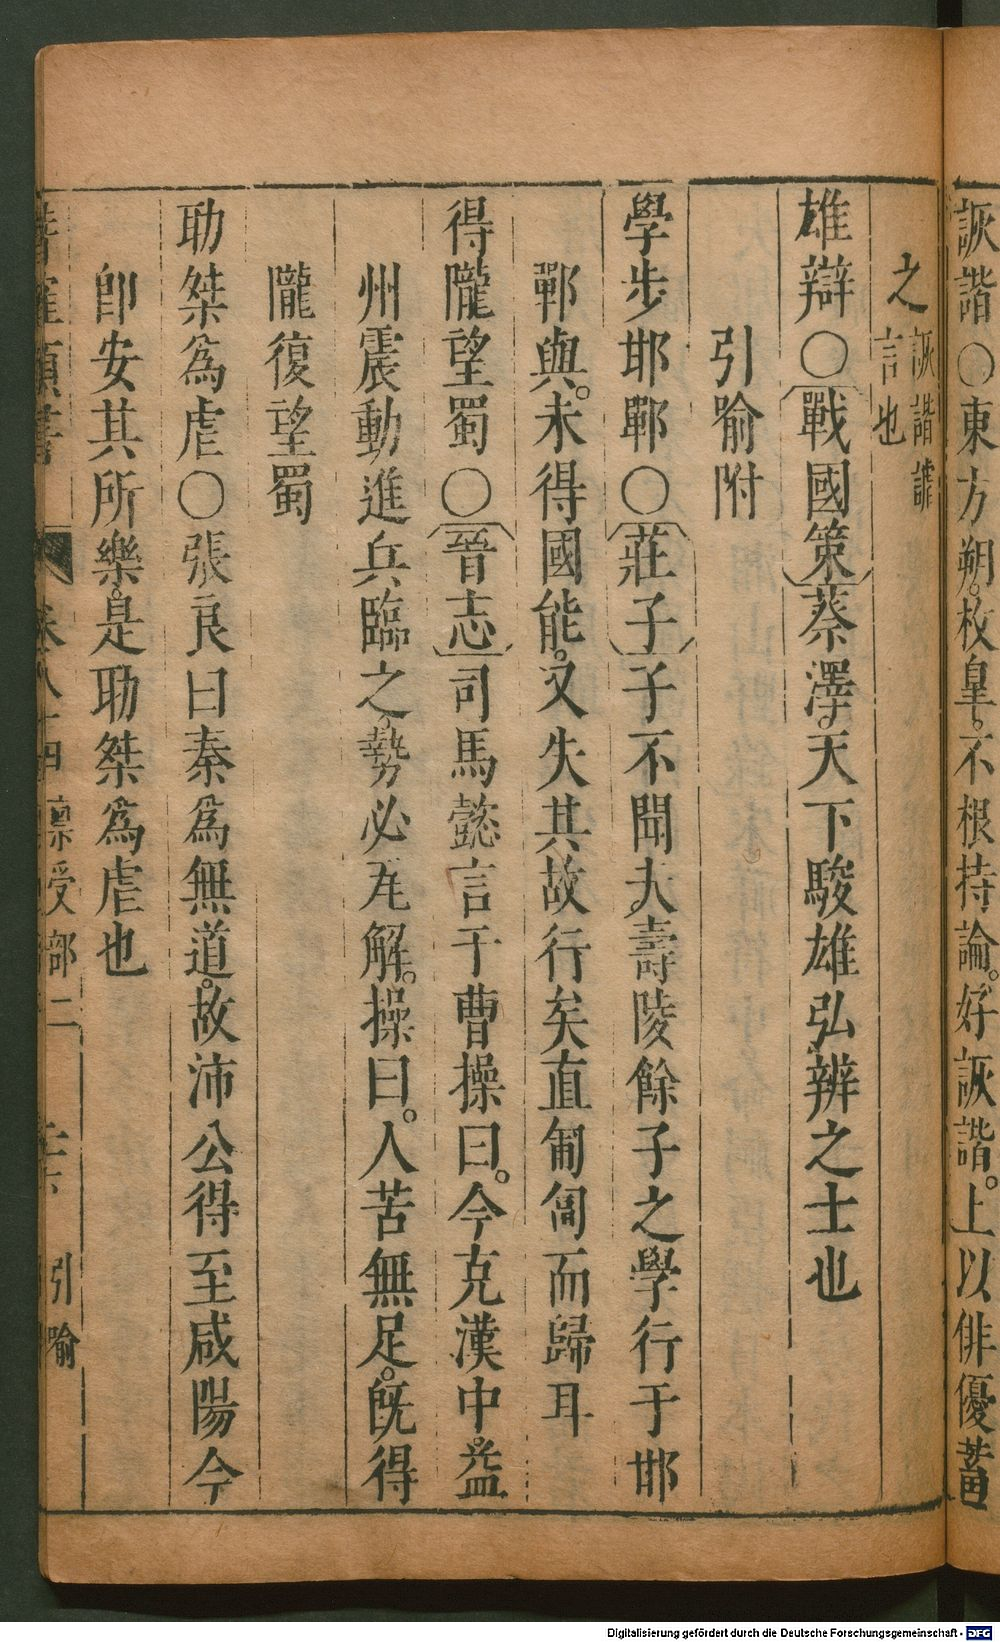 詼諧○東方朔。枚皇。不根持論。好詼諧。上以俳優蓄
之詼諧謔
言也
雄辯○戰國策蔡澤。天下駿雄弘辨之士也
引喻附
學步邯鄲○莊子子不聞夫壽陵餘子之學行于邯
鄲與。未得國能。又失其故行矣直匍匐而歸耳
得隴望蜀○晉志司馬懿言于曹操曰。今克漢中。益
州震動進兵臨之。勢必瓦解。操曰。人苦無足。旣得
隴復望蜀
助桀爲虐○張良曰秦爲無道。故沛公得至咸陽今
卽安其所樂。是助桀爲虐也
卷八十四 稟受部二 引喻
Digitalisierung gefördert durch die Deutsche Forschungsgemeinschaft - DFG